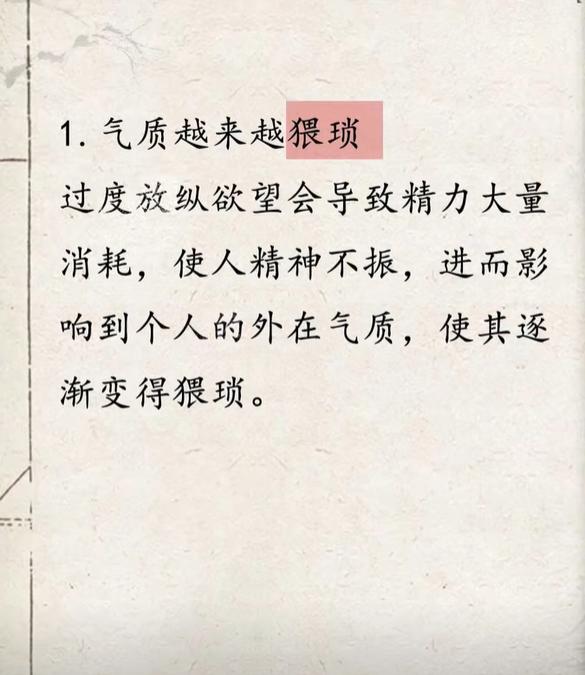 1. 气质越来越猥琐
过度放纵欲望会导致精力大量
消耗，使人精神不振，进而影
响到个人的外在气质，使其逐
渐变得猥琐。